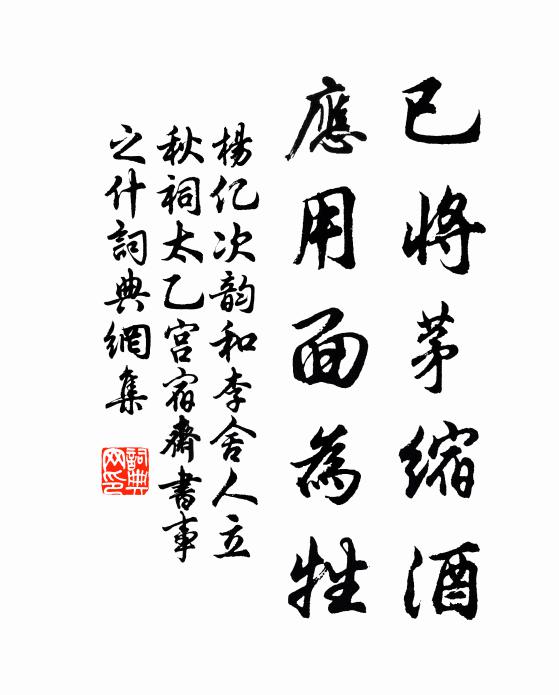 已將茅縮酒
應用面為牲
楊亿次韵和李舍人立
秋祠太乙宮宿齋書事
之什詞典網集
詞典网印